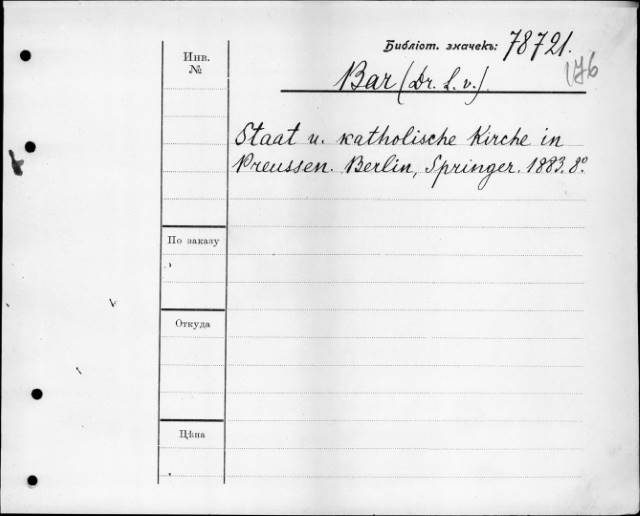 Библіот. значекъ: 78721.
176
Инв.
№
Bar (Dr. L. v.).
Staat u. katholische Kirche in
Preussen. Berlin, Springer. 1883. 8°.
По заказу
Откуда
Цѣна